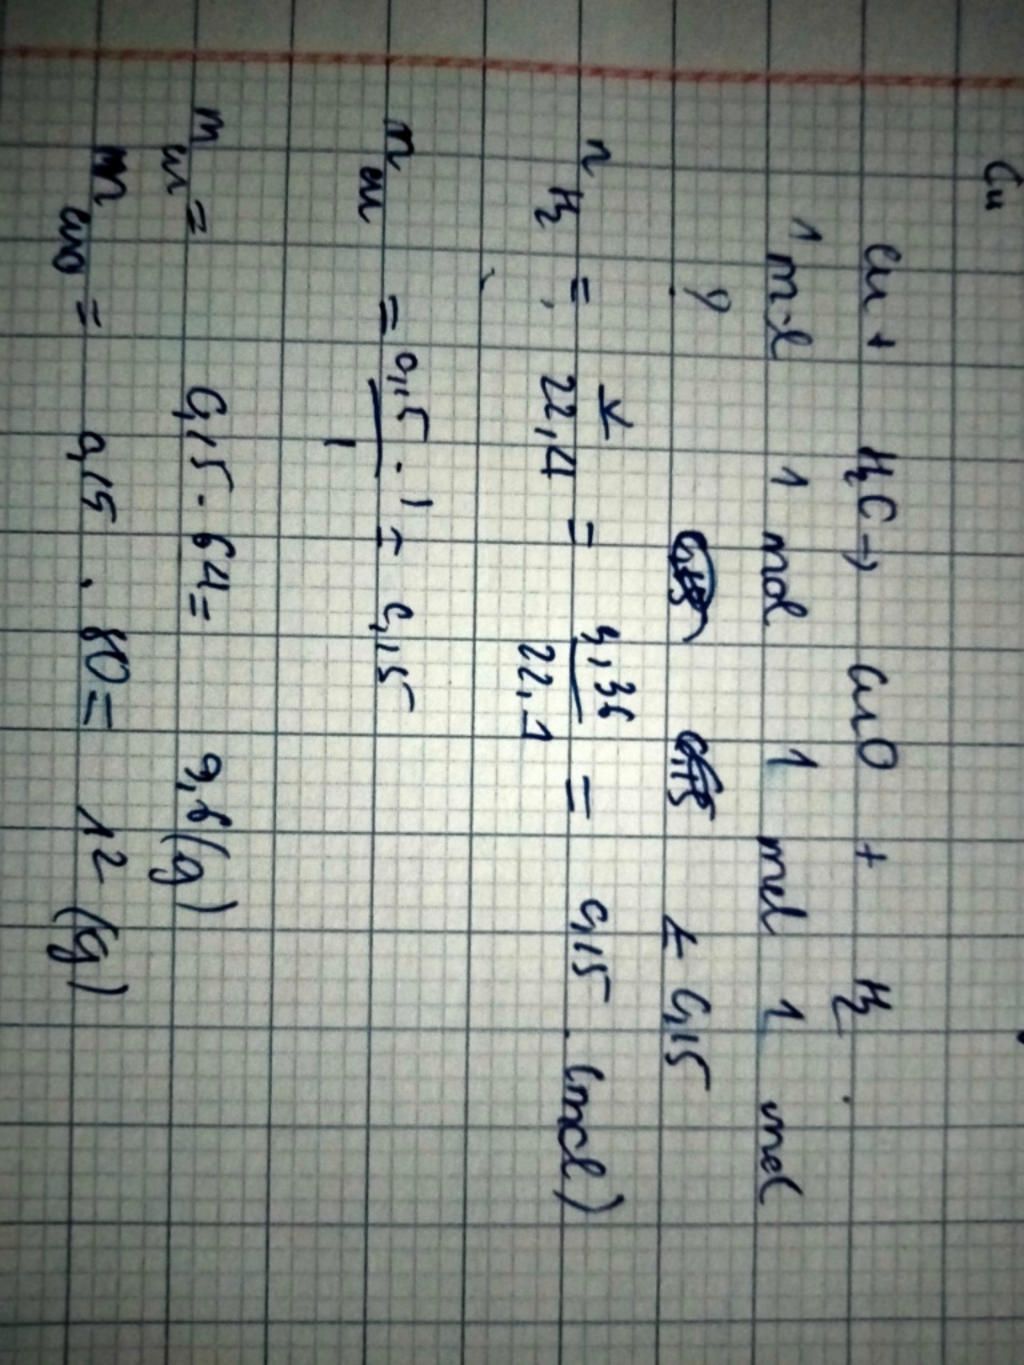 Cu
Cu + H₂O → CuO + H₂
1 mol 1 mol 1 mol 1 mol
? ← 0,15
n H₂ = V 22,4 = 3,36 / 22,4 = 0,15 (mol)
n Cu = 0,15 . 1 / 1 = 0,15
m Cu = 0,15 . 64 = 9,6 (g)
m CuO = 0,15 . 80 = 12 (g)